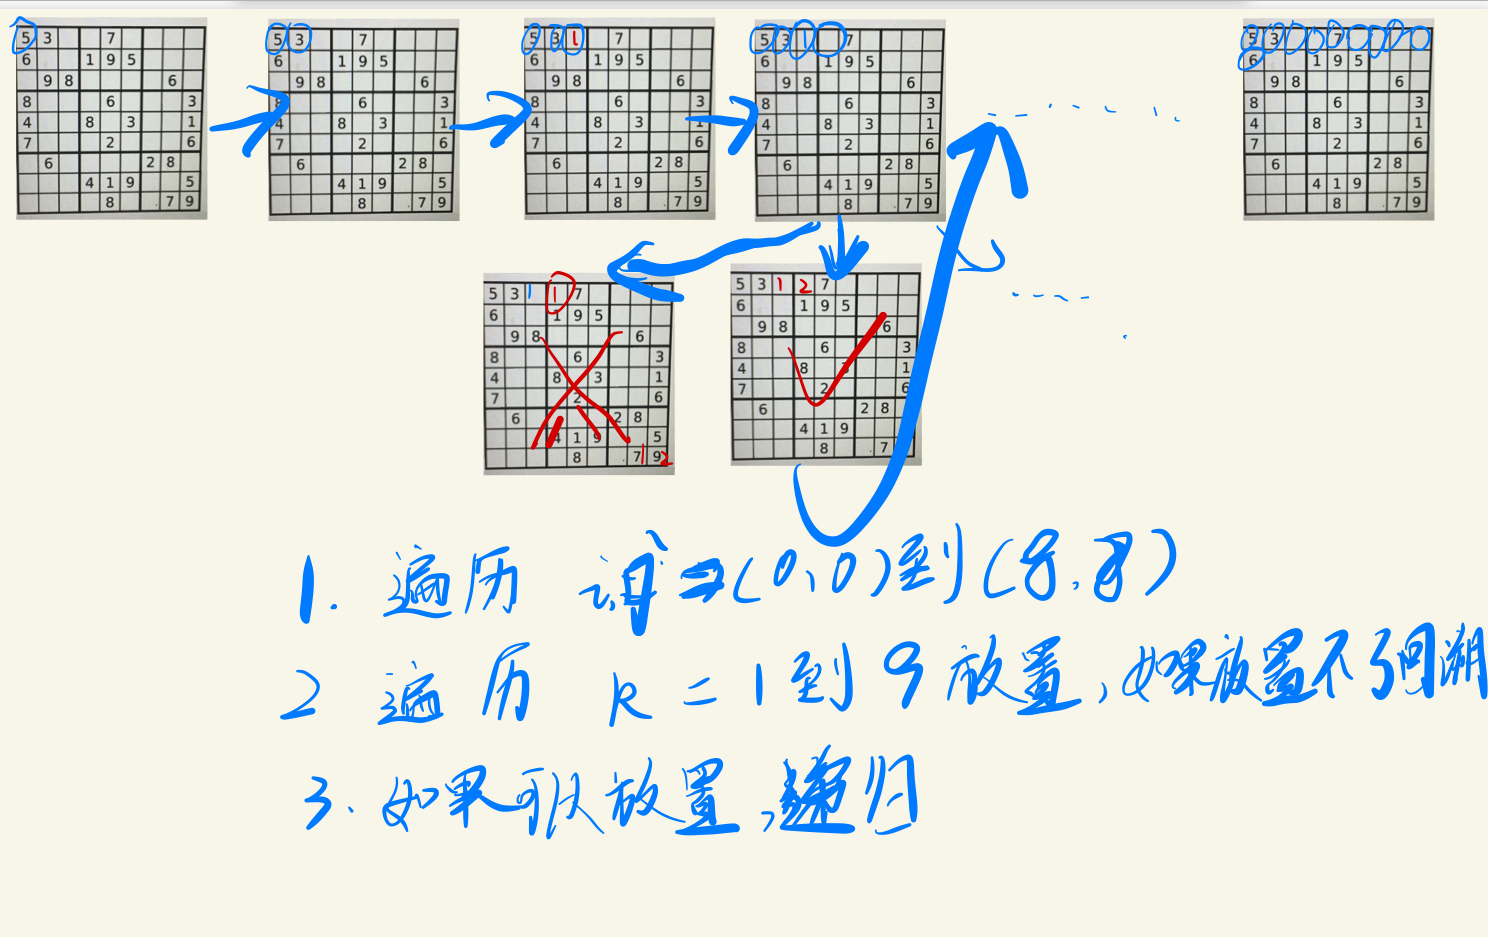 5 3 7
6 1 9 5
9 8 6
8 6 3
4 8 3 1
7 2 6
6 2 8
4 1 9 5
8 7 9
5 3 7
6 1 9 5
9 8 6
8 6 3
4 8 3 1
7 2 6
6 2 8
4 1 9 5
8 7 9
5 3 1 7
6 1 9 5
9 8 6
8 6 3
4 8 3 1
7 2 6
6 2 8
4 1 9 5
8 7 9
5 3 1 7
6 1 9 5
9 8 6
8 6 3
4 8 3 1
7 2 6
6 2 8
4 1 9 5
8 7 9
5 3 7
6 1 9 5
9 8 6
8 6 3
4 8 3 1
7 2 6
6 2 8
4 1 9 5
8 7 9
5 3 1 1 7
6 1 9 5
9 8 6
8 6 3
4 8 3 1
7 2 6
6 2 8
4 1 9 5
8 7 1 9 2
5 3 1 2 7
6 1 9 5
9 8 6
8 6 3
4 8 3 1
7 2 6
6 2 8
4 1 9
8 7
1. 遍历 (0,0)到(8,8)
2 遍历 k=1到9放置,如果放置不了回溯
3. 如果可以放置,递归